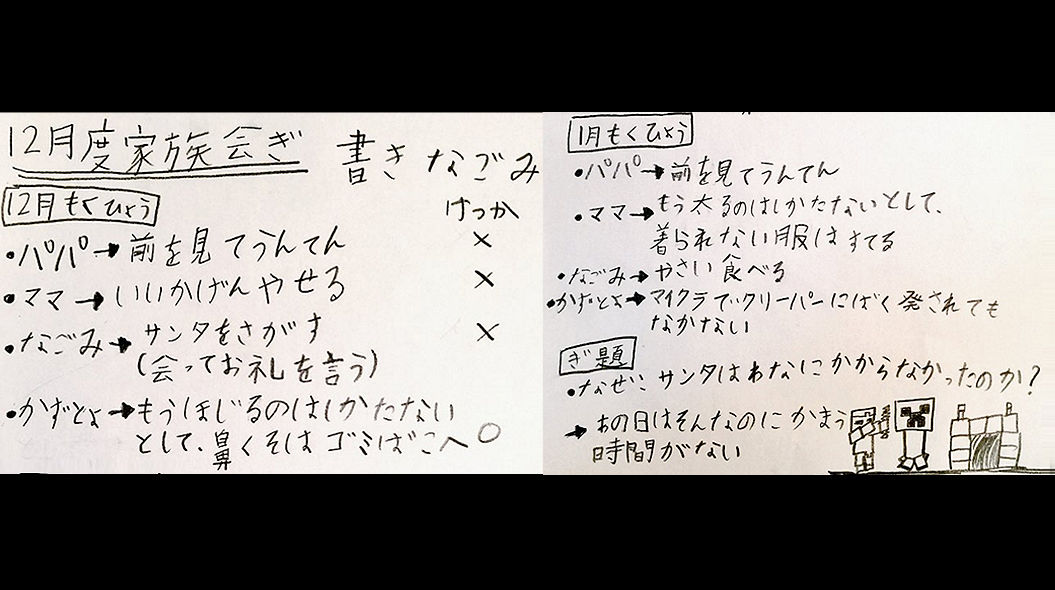 12月度家族会ぎ 書き なごみ
12月もくひょう
けっか
・パパ→前を見てうんてん ×
・ママ→いいかげんやせる ×
・なごみ→サンタをさがす ×
(会ってお礼を言う)
・かずとよ→もうほじるのはしかたない
として、鼻くそはゴミばこへ ○
1月もくひょう
・パパ→前を見てうんてん
・ママ→もう太るのはしかたないとして、
着られない服はすてる
・なごみ→やさい食べる
・かずとよ→マイクラでクリーパーにばく発されても
なかない
ぎ題
・なぜ:サンタはわなにかからなかったのか?
→あの日はそんなのにかまう
時間がない